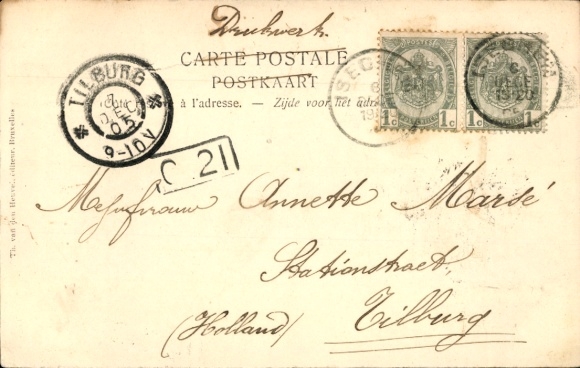 Drukwerk
CARTE POSTALE
POSTKAART
à l'adresse. — Zijde voor het
TILBURG
7
DEC
05
9-10V
C 21
1c 1c
Mejufvrouw Annette Marsé
Stationstraat,
Tilburg
(Holland)
Th. van den Heuvel, éditeur, Bruxelles